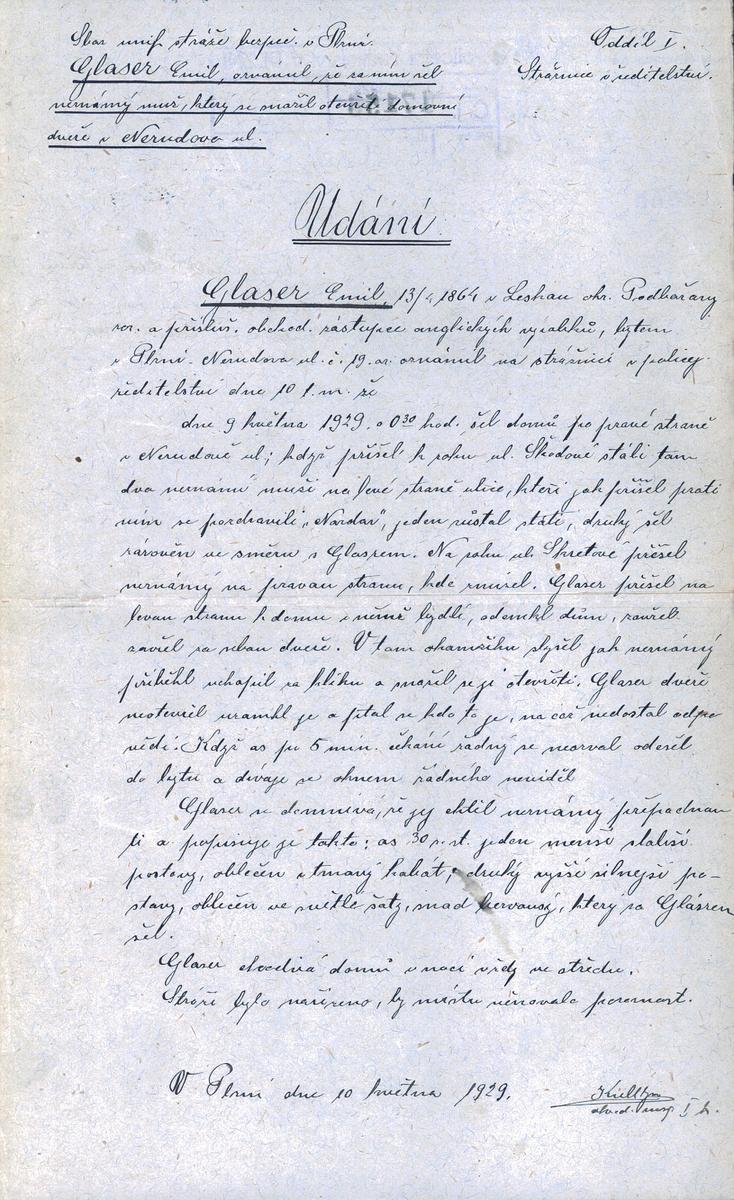 Sbor unif. stráže bezpeč. v Plzni.
Oddíl I.
Glaser Emil, oznamuje, že za ním šel
Strážnice ředitelství.
neznámý muž, který se snažil otevříti domovní
dveře v Nerudova ul.
Udání.
Glaser Emil, 13/4 1864 v Leskau okr. Podbořany
nar. a přísluš. obchod. zástupce anglických výrobků, bytem
v Plzni. Nerudova ul. č. 19. oznámil na strážnici v policej.
ředitelství dne 10 t. m. že
dne 9 května 1929. o 0 30 hod. šel domů po pravé straně
v Nerudově ul; když přišel k rohu ul. Škodové stáli tam
dva neznámí muži na levé straně ulice, kteří jak přišel proti
nim se pozdravili „Nazdar", jeden zůstal státi, druhý šel
zároveň ve směru s Glasrem. Na rohu ul. Skretové přešel
neznámý na pravou stranu, kde zmizel. Glaser přešel na
levou stranu k domu v němž bydlí, odemkl dům,
zavřel za sebou dveře. V tom okamžiku slyšel jak neznámý
přiběhl uchopil za kliku a snažil se ji otevříti. Glaser dveře
neotevřel uzamkl je a ptal se kdo to je, na což nedostal odpo
vědi. Když as po 5 min. čekání žádný se neozval odešel
do bytu a dívaje se oknem žádného neviděl
Glaser se domnívá, že jej chtil neznámý přepadnou
ti a popisuje je takto: as 30 r. st. jeden menší slabší
postavy, oblečen v tmavý kabát; druhý vyšší silnejší po-
stavy, oblečen ve světlé šaty, snad který za Glásrem
šel.
Glaser chodívá domů v noci vždy ve středu.
Stráži bylo nařízeno, by místu věnovala pozornost.
V Plzni dne 10 května 1929.
I tř.